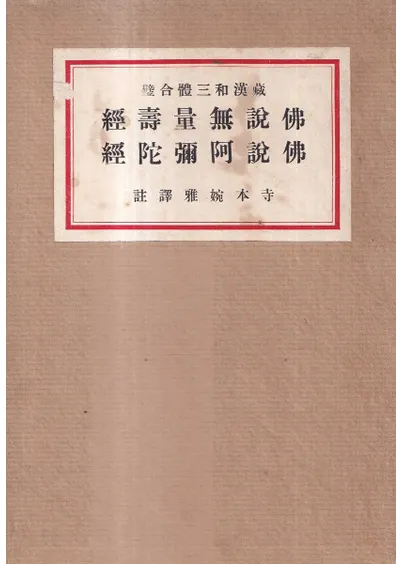 藏漢和三體合璧
佛說無量壽經
佛說阿彌陀經
寺本婉雅譯註